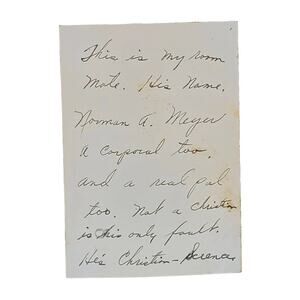 This is my room
Mate. His Name.
Norman A. Meyer
a corporal too.
and a real pal
too. Not a Christian
is this only fault.
He's Christian-Science